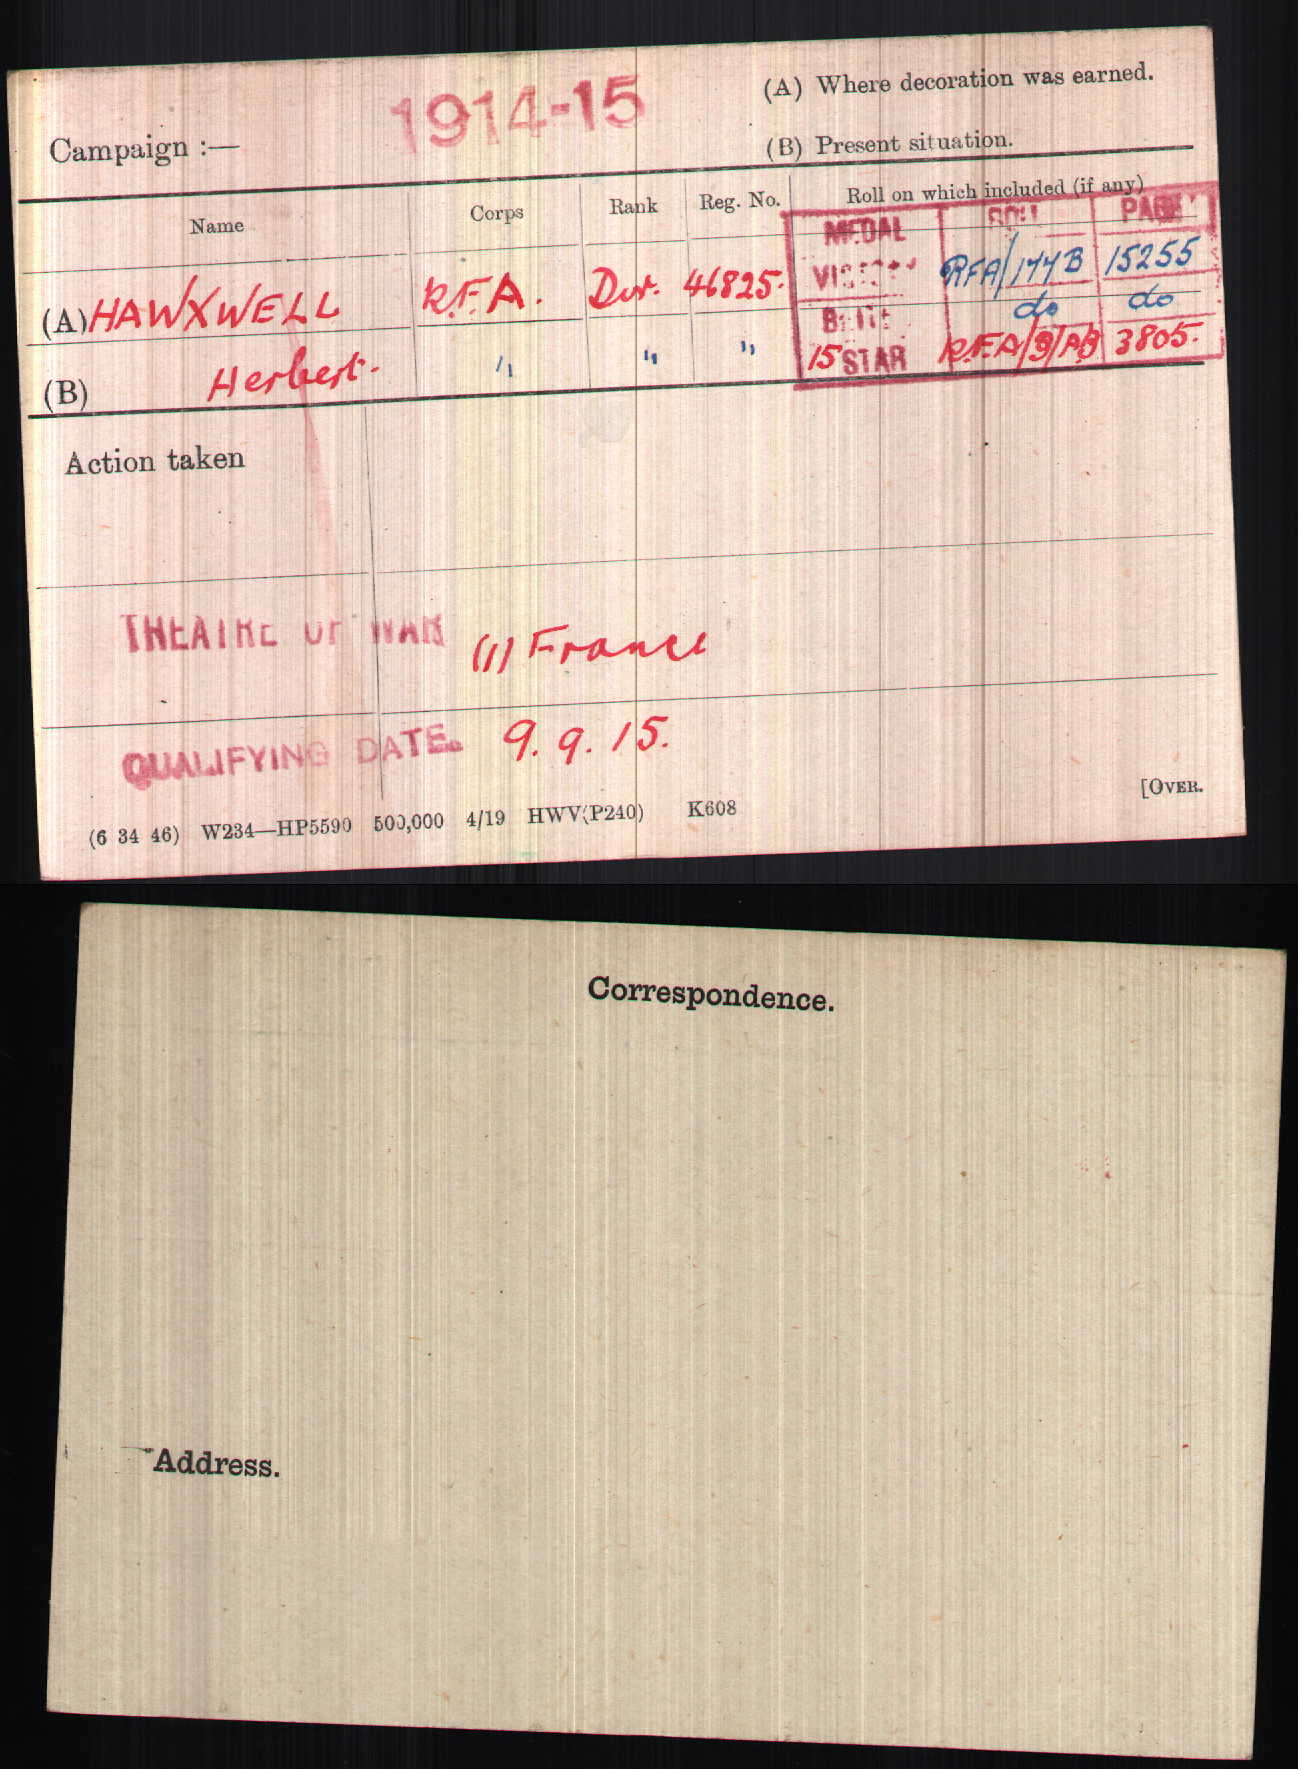 Campaign :— 1914-15
(A) Where decoration was earned.
(B) Present situation.
Name Corps Rank Reg. No. Roll on which included (if any)
MEDAL ROLL PAGE
(A) HAWXWELL R.F.A. Dvr. 46825. VICTORY RFA/177B 15255
(B) Herbert. " " " BRITISH do do
15 STAR R.F.A/9/AB 3805.
Action taken
THEATRE OF WAR (1) France
QUALIFYING DATE. 9.9.15.
(6 34 46) W234—HP5590 500,000 4/19 HWV(P240) K608
[OVER.
Correspondence.
Address.